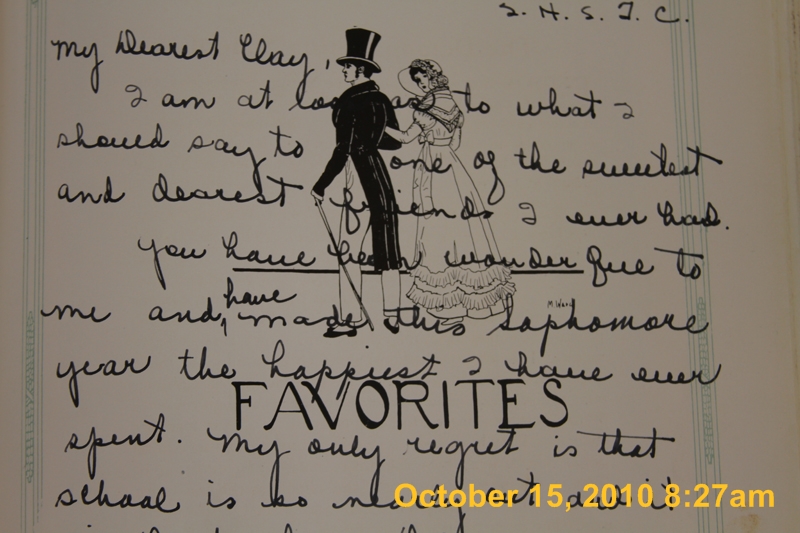 S. H. S. T. C.
My Dearest Clay,
I am at loss as to what I
should say to one of the sweetest
and dearest friends I ever had.
You have been wonderful to
me and, have made this sophomore
year the happiest I have ever
FAVORITES
spent. My only regret is that
school is so nearly out and it
October 15, 2010 8:27am